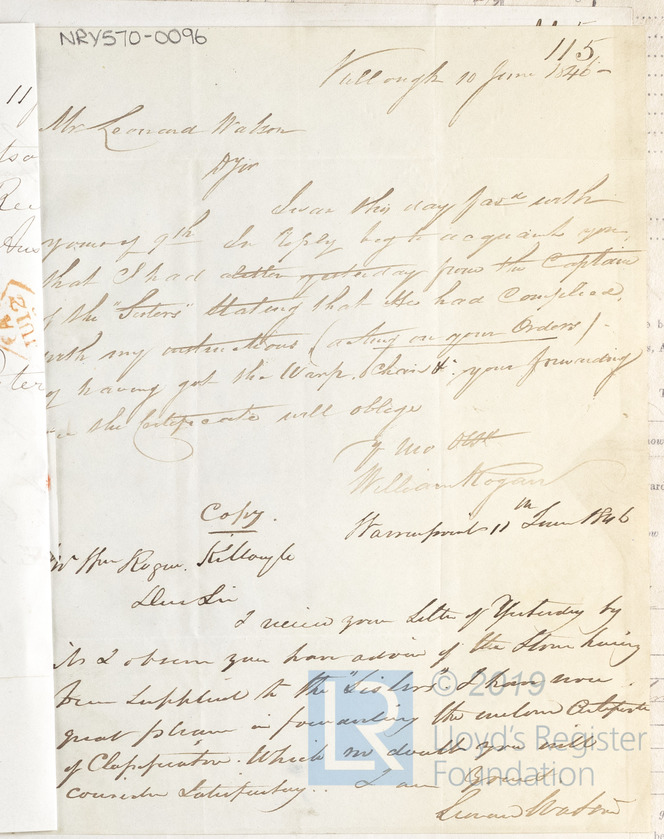 NRY570-0096
115
Killough 10 June 1846
Mr Leonard Watson
Sir
I was this day favd with
yours of 9th In Reply beg to acquaint you
that I had a letter yesterday from the Captain
of the "Sisters" stating that He had Complied
with my instructions (acting on your Orders)
of having got the Warp, Chain & your forwarding
me the Certificate will oblege
yr mo Obt
William Rogan
Copy.
Warrenpoint 11th June 1846
Mr Wm Rogan. Killough
Dear Sir
I receive your Letter of Yesterday by
its I observe you have advice of the Stores having
been Supplied to the "Sisters". I have now
great pleasure in forwarding the enclosed Certificate
of Classification. Which no doubt you will
consider Satisfactory. I am Yours
Leonard Watson
11
© 2019
LR
Lloyd's Register
Foundation